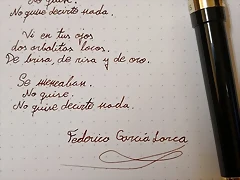 No quise.
No quise decirte nada.
Vi en tus ojos
dos arbolitos locos.
De brisa, de risa y de oro.
Se meneaban.
No quise.
No quise decirte nada.
Federico García Lorca